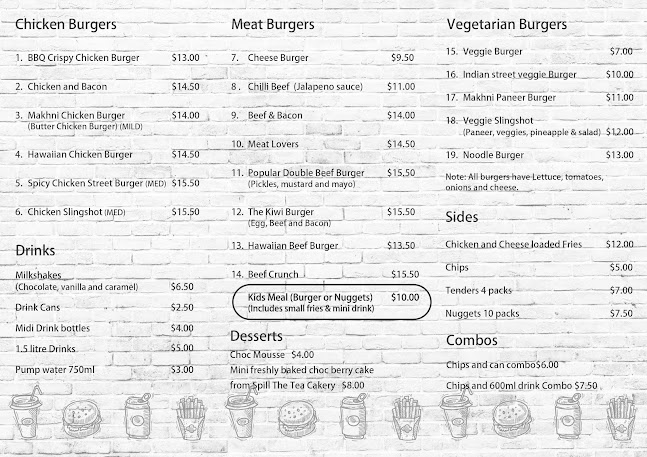 Chicken Burgers
1. BBQ Crispy Chicken Burger $13.00
2. Chicken and Bacon $14.50
3. Makhni Chicken Burger $14.00
(Butter Chicken Burger) (MILD)
4. Hawaiian Chicken Burger $14.50
5. Spicy Chicken Street Burger (MED) $15.50
6. Chicken Slingshot (MED) $15.50
Drinks
Milkshakes
(Chocolate, vanilla and caramel) $6.50
Drink Cans $2.50
Midi Drink bottles $4.00
1.5 litre Drinks $5.00
Pump water 750ml $3.00
Meat Burgers
7. Cheese Burger $9.50
8. Chilli Beef (Jalapeno sauce) $11.00
9. Beef & Bacon $14.00
10. Meat Lovers $14.50
11. Popular Double Beef Burger $15.50
(Pickles, mustard and mayo)
12. The Kiwi Burger $15.50
(Egg, Beef and Bacon)
13. Hawaiian Beef Burger $13.50
14. Beef Crunch $15.50
Kids Meal (Burger or Nuggets) $10.00
(Includes small fries & mini drink)
Desserts
Choc Mousse $4.00
Mini freshly baked choc berry cake
from Spill The Tea Cakery $8.00
Vegetarian Burgers
15. Veggie Burger $7.00
16. Indian street veggie Burger $10.00
17. Makhni Paneer Burger $11.00
18. Veggie Slingshot
(Paneer, veggies, pineapple & salad) $12.00
19. Noodle Burger $13.00
Note: All burgers have Lettuce, tomatoes,
onions and cheese.
Sides
Chicken and Cheese loaded Fries $12.00
Chips $5.00
Tenders 4 packs $7.00
Nuggets 10 packs $7.50
Combos
Chips and can combo$6.00
Chips and 600ml drink Combo $7.50